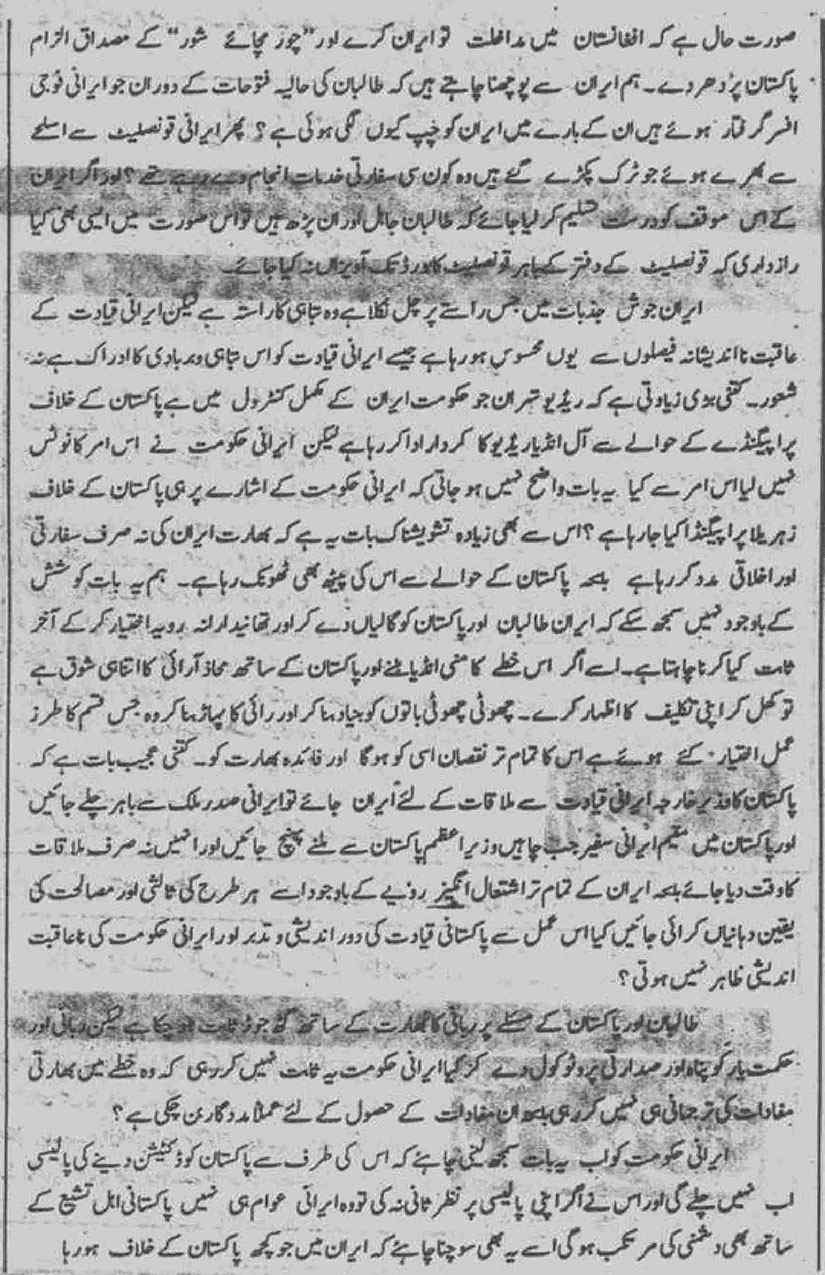 صورت حال ہے کہ افغانستان میں مداخلت تو ایران کرے اور ”چور مچائے شور“ کے مصداق الزام
پاکستان پر دھر دے۔ ہم ایران سے پوچھنا چاہتے ہیں کہ طالبان کی حالیہ فتوحات کے دوران جو ایرانی فوجی
افسر گرفتار ہوئے ہیں ان کے بارے میں ایران کو چپ کیوں لگی ہوئی ہے؟ پھر ایرانی قونصلیٹ سے اسلحے
سے بھرے ہوئے جو ٹرک پکڑے گئے ہیں وہ کون سی سفارتی خدمات انجام دے رہے تھے؟ اور اگر ایران
کے اس موقف کو درست تسلیم کر لیا جائے کہ طالبان جاہل اور ان پڑھ ہیں تو اس صورت میں ایسی بھی کیا
رازداری کہ قونصلیٹ کے دفتر کے باہر قونصلیٹ کا بورڈ تک آویزاں نہ کیا جائے۔
ایران جوش جذبات میں جس راستے پر چل نکلا ہے وہ تباہی کا راستہ ہے لیکن ایرانی قیادت کے
عاقبت نا اندیشانہ فیصلوں سے یوں محسوس ہو رہا ہے جیسے ایرانی قیادت کو اس تباہی و بربادی کا ادراک ہے نہ
شعور۔ کتنی بڑی زیادتی ہے کہ ریڈیو تہران جو حکومت ایران کے مکمل کنٹرول میں ہے پاکستان کے خلاف
پراپیگنڈے کے حوالے سے آل انڈیا ریڈیو کا کردار ادا کر رہا ہے لیکن ایرانی حکومت نے اس امر کا نوٹس
نہیں لیا اس امر سے کیا یہ بات واضح نہیں ہو جاتی کہ ایرانی حکومت کے اشارے پر ہی پاکستان کے خلاف
زہریلا پراپیگنڈا کیا جا رہا ہے؟ اس سے بھی زیادہ تشویشناک بات یہ ہے کہ بھارت ایران کی نہ صرف سفارتی
اور اخلاقی مدد کر رہا ہے بلکہ پاکستان کے حوالے سے اس کی پیٹھ بھی ٹھونک رہا ہے۔ ہم یہ بات کوشش
کے باوجود نہیں سمجھ سکے کہ ایران طالبان اور پاکستان کو گالیاں دے کر اور تھانیدارانہ رویہ اختیار کر کے آخر
ثابت کیا کرنا چاہتا ہے۔ اسے اگر اس خطے کا منی انڈیا بننے اور پاکستان کے ساتھ محاذ آرائی کا اتنا ہی شوق ہے
تو کھل کر اپنی تکلیف کا اظہار کرے۔ چھوٹی چھوٹی باتوں کو بنیاد بنا کر اور رائی کا پہاڑ بنا کر وہ جس قسم کا طرز
عمل اختیار کئے ہوئے ہے اس کا تمام تر نقصان اسی کو ہوگا اور فائدہ بھارت کو۔ کتنی عجیب بات ہے کہ
پاکستان کا وزیر خارجہ ایرانی قیادت سے ملاقات کے لئے ایران جائے تو ایرانی صدر ملک سے باہر چلے جائیں
اور پاکستان میں مقیم ایرانی سفیر جب چاہیں وزیر اعظم پاکستان سے ملنے پہنچ جائیں اور انہیں نہ صرف ملاقات
کا وقت دیا جائے بلکہ ایران کے تمام تر اشتعال انگیز رویے کے باوجود اسے ہر طرح کی ثالثی اور مصالحت کی
یقین دہانیاں کرائی جائیں کیا اس عمل سے پاکستانی قیادت کی دور اندیشی و تدبر اور ایرانی حکومت کی نا عاقبت
اندیشی ظاہر نہیں ہوتی؟
طالبان اور پاکستان کے مسئلے پر ربانی کا بھارت کے ساتھ گٹھ جوڑ ثابت ہو چکا ہے لیکن ربانی اور
حکمت یار کو پناہ اور صدارتی پروٹوکول دے کر کیا ایرانی حکومت یہ ثابت نہیں کر رہی کہ وہ خطے میں بھارتی
مفادات کی ترجمانی ہی نہیں کر رہی بلکہ ان مفادات کے حصول کے لئے عملاً مددگار بن چکی ہے؟
ایرانی حکومت کو اب یہ بات سمجھ لینی چاہئے کہ اس کی طرف سے پاکستان کو ڈکٹیشن دینے کی پالیسی
اب نہیں چلے گی اور اس نے اگر اپنی پالیسی پر نظر ثانی نہ کی تو وہ ایرانی عوام ہی نہیں پاکستانی اہل تشیع کے
ساتھ بھی دشمنی کی مرتکب ہوگی اسے یہ بھی سوچنا چاہئے کہ ایران میں جو کچھ پاکستان کے خلاف ہو رہا